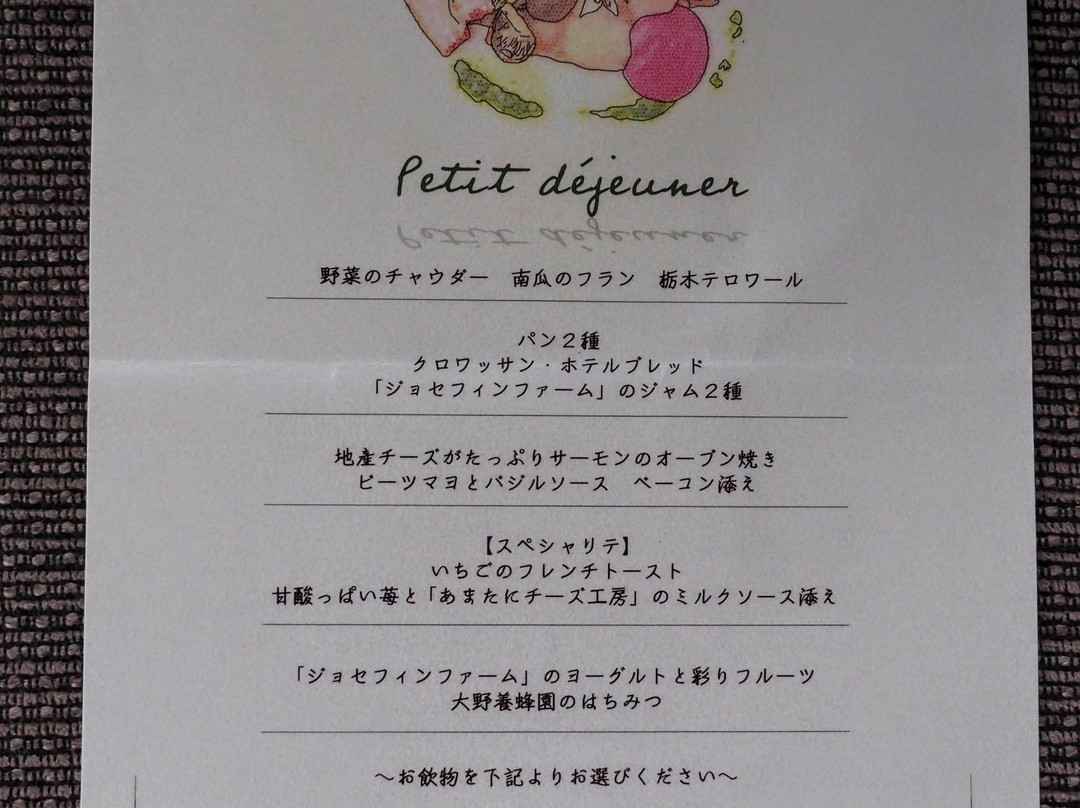 Petit déjeuner
野菜のチャウダー　南瓜のフラン　栃木テロワール
パン２種
クロワッサン・ホテルブレッド
「ジョセフィンファーム」のジャム２種
地産チーズがたっぷりサーモンのオーブン焼き
ビーツマヨとバジルソース　ベーコン添え
【スペシャリテ】
いちごのフレンチトースト
甘酸っぱい苺と「あまたにチーズ工房」のミルクソース添え
「ジョセフィンファーム」のヨーグルトと彩りフルーツ
大野養蜂園のはちみつ
～お飲物を下記よりお選びください～